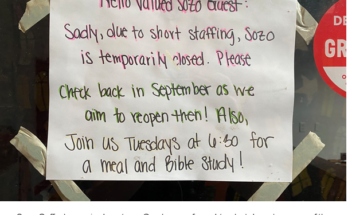 Hello Valued Sozo Guest:
Sadly, due to short staffing, Sozo
is temporarily closed. Please
Check back in September as we
aim to reopen then! Also,
Join us Tuesdays at 6:30 for
a meal and Bible Study!
DE
GR